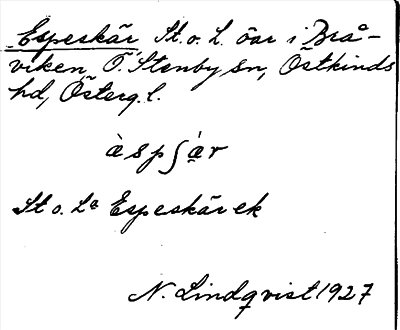 Espeskär St. o. L. öar i Brå-
viken, Ö. Stenby sn, Östkinds
hd, Österg. l.
àspʃa̤̍r
St o. La Espeskär ek
N. Lindqvist 1927